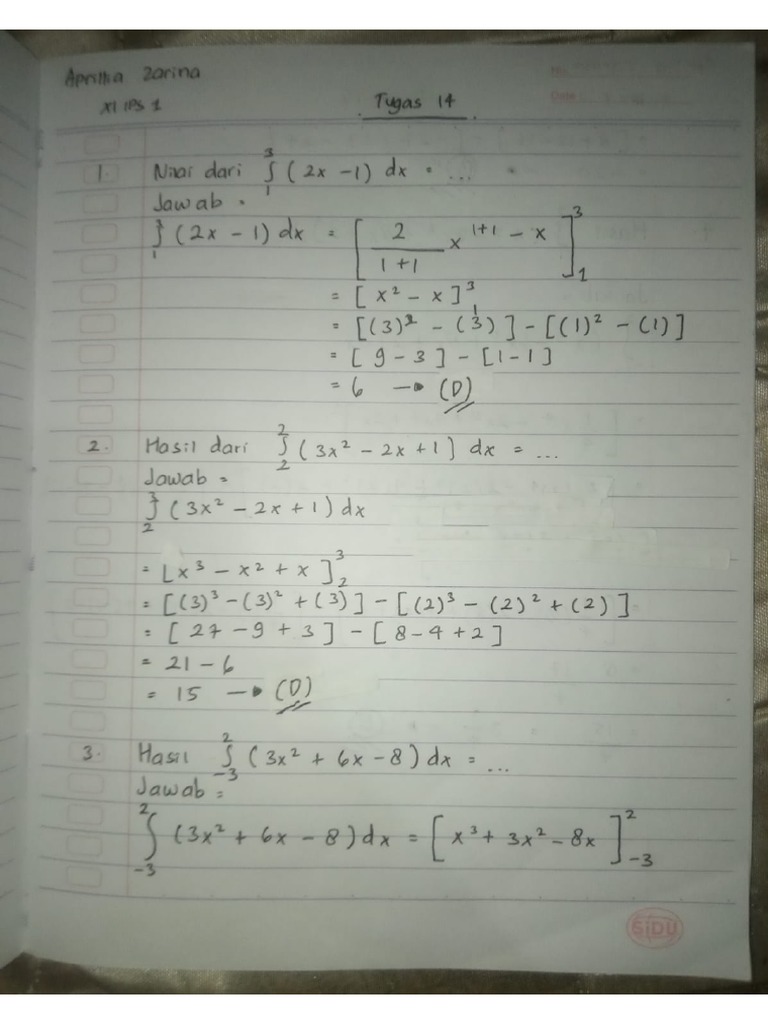 Aprillia Zarina
XI IPS 1
Tugas 14
No.
Date
1. Nilai dari ∫₁³ (2x - 1) dx = ...
Jawab =
∫₁³ (2x - 1) dx = [2/(1+1) x¹⁺¹ - x]₁³
= [x² - x]₁³
= [(3)² - (3)] - [(1)² - (1)]
= [9 - 3] - [1 - 1]
= 6 → (D)
2. Hasil dari ∫₂² (3x² - 2x + 1) dx = ...
Jawab =
∫₂³ (3x² - 2x + 1) dx
= [x³ - x² + x]₂³
= [(3)³ - (3)² + (3)] - [(2)³ - (2)² + (2)]
= [27 - 9 + 3] - [8 - 4 + 2]
= 21 - 6
= 15 → (D)
3. Hasil ∫₋₃² (3x² + 6x - 8) dx = ...
Jawab =
∫₋₃² (3x² + 6x - 8) dx = [x³ + 3x² - 8x]₋₃²
SiDU